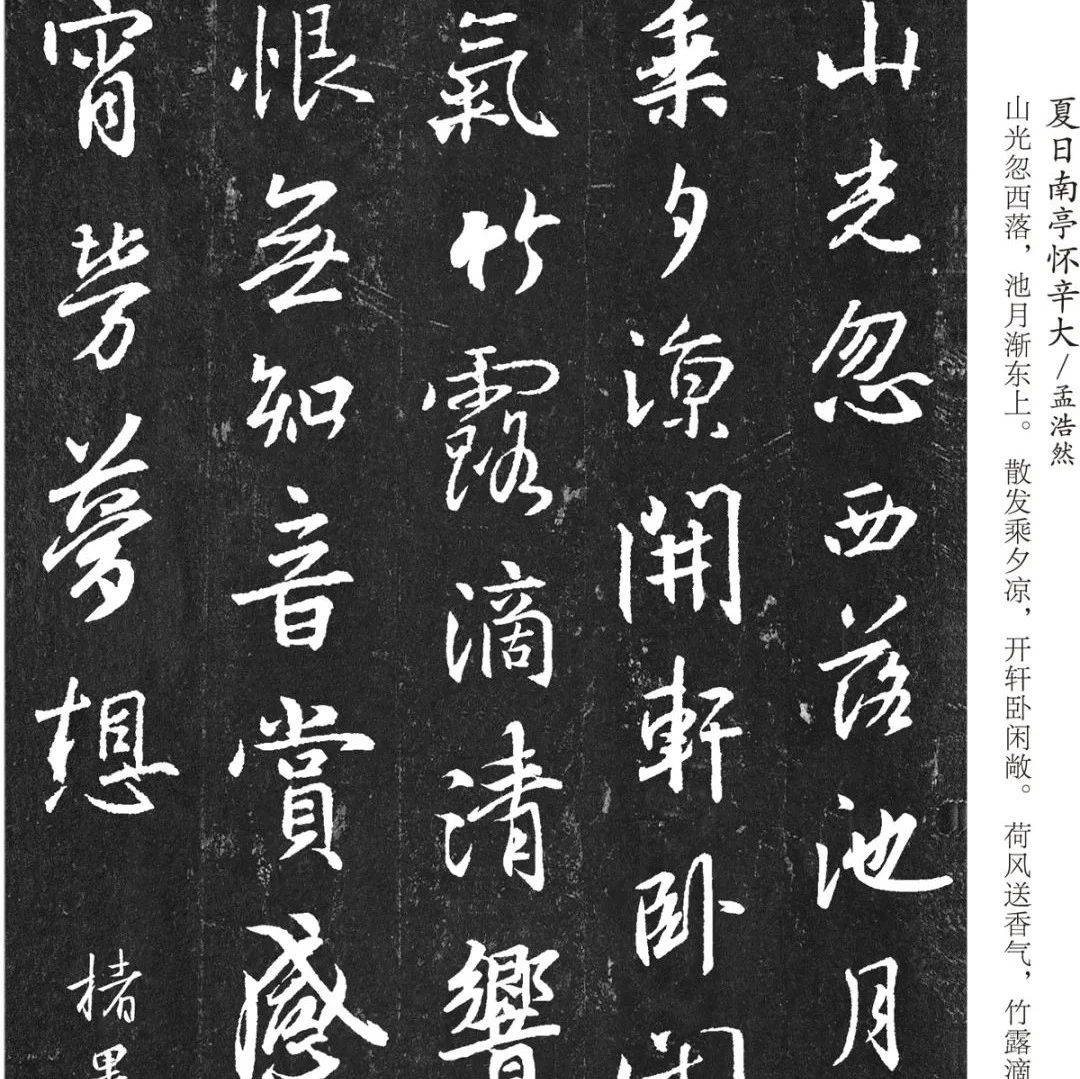 夏日南亭怀辛大/孟浩然
山光忽西落，池月渐东上。散发乘夕凉，开轩卧闲敞。荷风送香气，竹露滴
山光忽西落池月
乘夕凉開軒卧閑
氣竹露滴清響
恨無知音賞感
宵勞夢想
楮墨